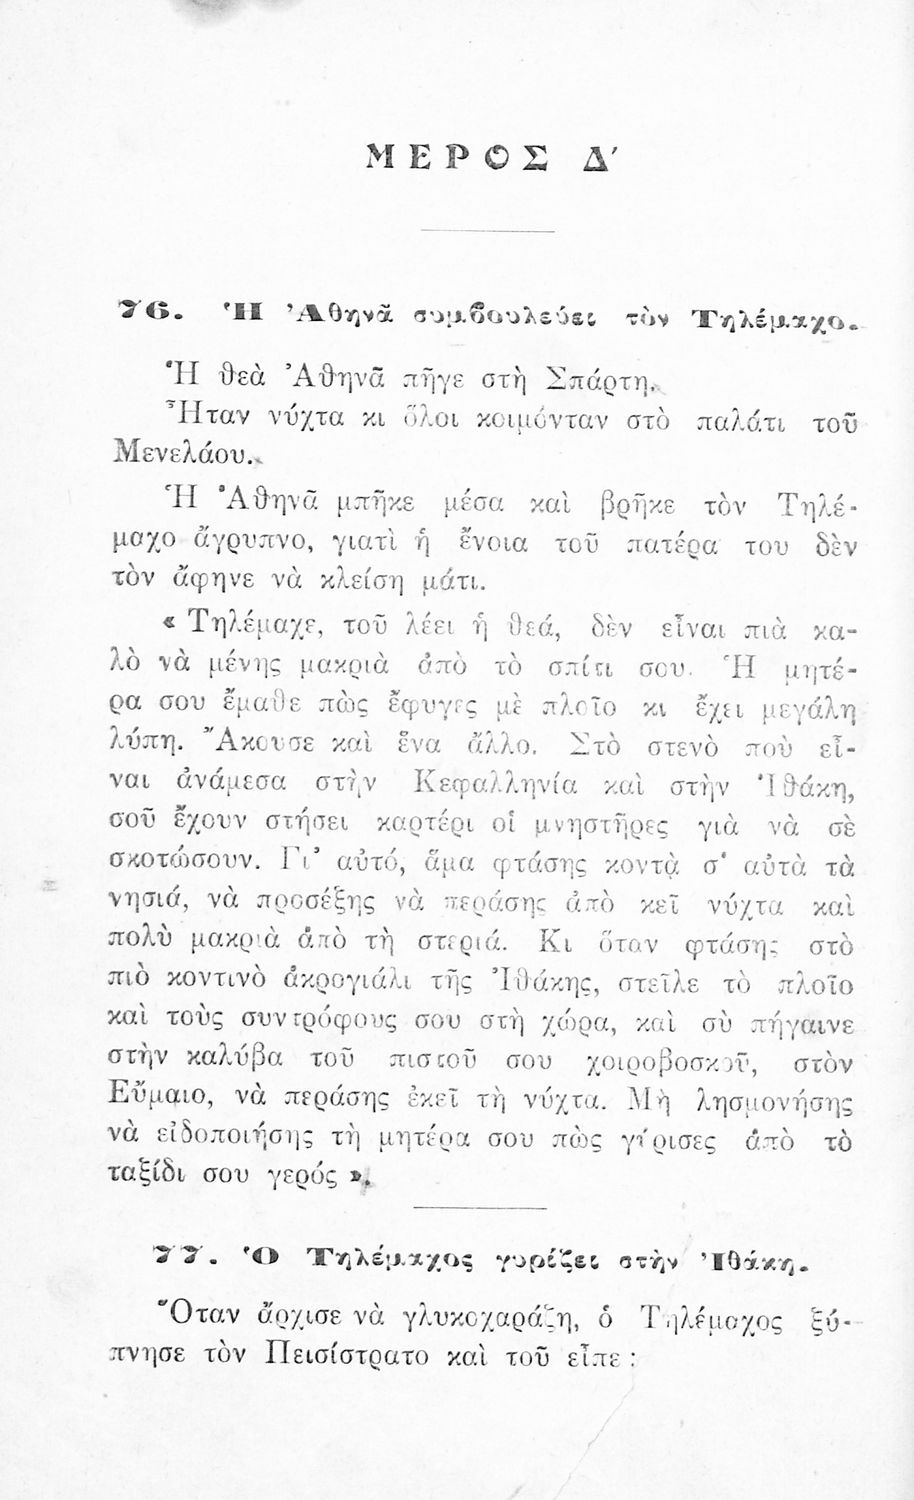 ΜΕΡΟΣ Δ′
76. Ἡ Ἀθηνᾶ συμβουλεύει τὸν Τηλέμαχο.
Ἡ θεὰ Ἀθηνᾶ πῆγε στὴ Σπάρτη.
Ἦταν νύχτα κι ὅλοι κοιμόνταν στὸ παλάτι τοῦ
Μενελάου.
Ἡ Ἀθηνᾶ μπῆκε μέσα καὶ βρῆκε τὸν Τηλέ-
μαχο ἄγρυπνο, γιατὶ ἡ ἔνοια τοῦ πατέρα του δὲν
τὸν ἄφηνε νὰ κλείση μάτι.
« Τηλέμαχε, τοῦ λέει ἡ θεά, δὲν εἶναι πιὰ κα-
λὸ νὰ μένης μακριὰ ἀπὸ τὸ σπίτι σου. Ἡ μητέ-
ρα σου ἔμαθε πὼς ἔφυγες μὲ πλοῖο κι ἔχει μεγάλη
λύπη. Ἄκουσε καὶ ἕνα ἄλλο. Στὸ στενὸ ποὺ εἶ-
ναι ἀνάμεσα στὴν Κεφαλληνία καὶ στὴν Ἰθάκη,
σοῦ ἔχουν στήσει καρτέρι οἱ μνηστῆρες γιὰ νὰ σὲ
σκοτώσουν. Γι’ αὐτό, ἅμα φτάσης κοντὰ σ’ αὐτὰ τὰ
νησιά, νὰ προσέξης νὰ περάσης ἀπὸ κεῖ νύχτα καὶ
πολὺ μακριὰ ἀπὸ τὴ στεριά. Κι ὅταν φτάσης στὸ
πιὸ κοντινὸ ἀκρογιάλι τῆς Ἰθάκης, στεῖλε τὸ πλοῖο
καὶ τοὺς συντρόφους σου στὴ χώρα, καὶ σὺ πήγαινε
στὴν καλύβα τοῦ πιστοῦ σου χοιροβοσκοῦ, στὸν
Εὔμαιο, νὰ περάσης ἐκεῖ τὴ νύχτα. Μὴ λησμονήσης
νὰ εἰδοποιήσης τὴ μητέρα σου πὼς γύρισες ἀπὸ τὸ
ταξίδι σου γερός ».
77. Ὁ Τηλέμαχος γυρίζει στὴν Ἰθάκη.
Ὅταν ἄρχισε νὰ γλυκοχαράζη, ὁ Τηλέμαχος ξύ-
πνησε τὸν Πεισίστρατο καὶ τοῦ εἶπε :